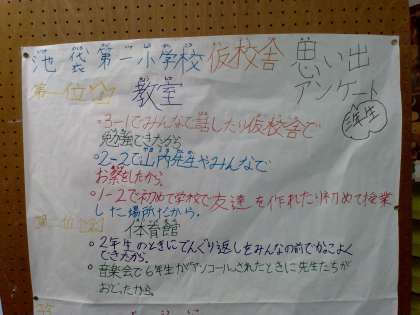 池袋第一小学校仮校舎 思い出
アンケート
3年生
第一位 教室
・3-1でみんなで話したり仮校舎で
勉強できたから。
・2-2で山内先生やみんなで
お祭をしたから。
・1-2で初めて学校で友達を作れたり初めて授業
した場所だから。
第二位 体育館
・2年生のときにでんぐり返しをみんなの前でかっこよく
できたから。
・音楽会で6年生がアンコールされたときに先生たちが
おどったから。